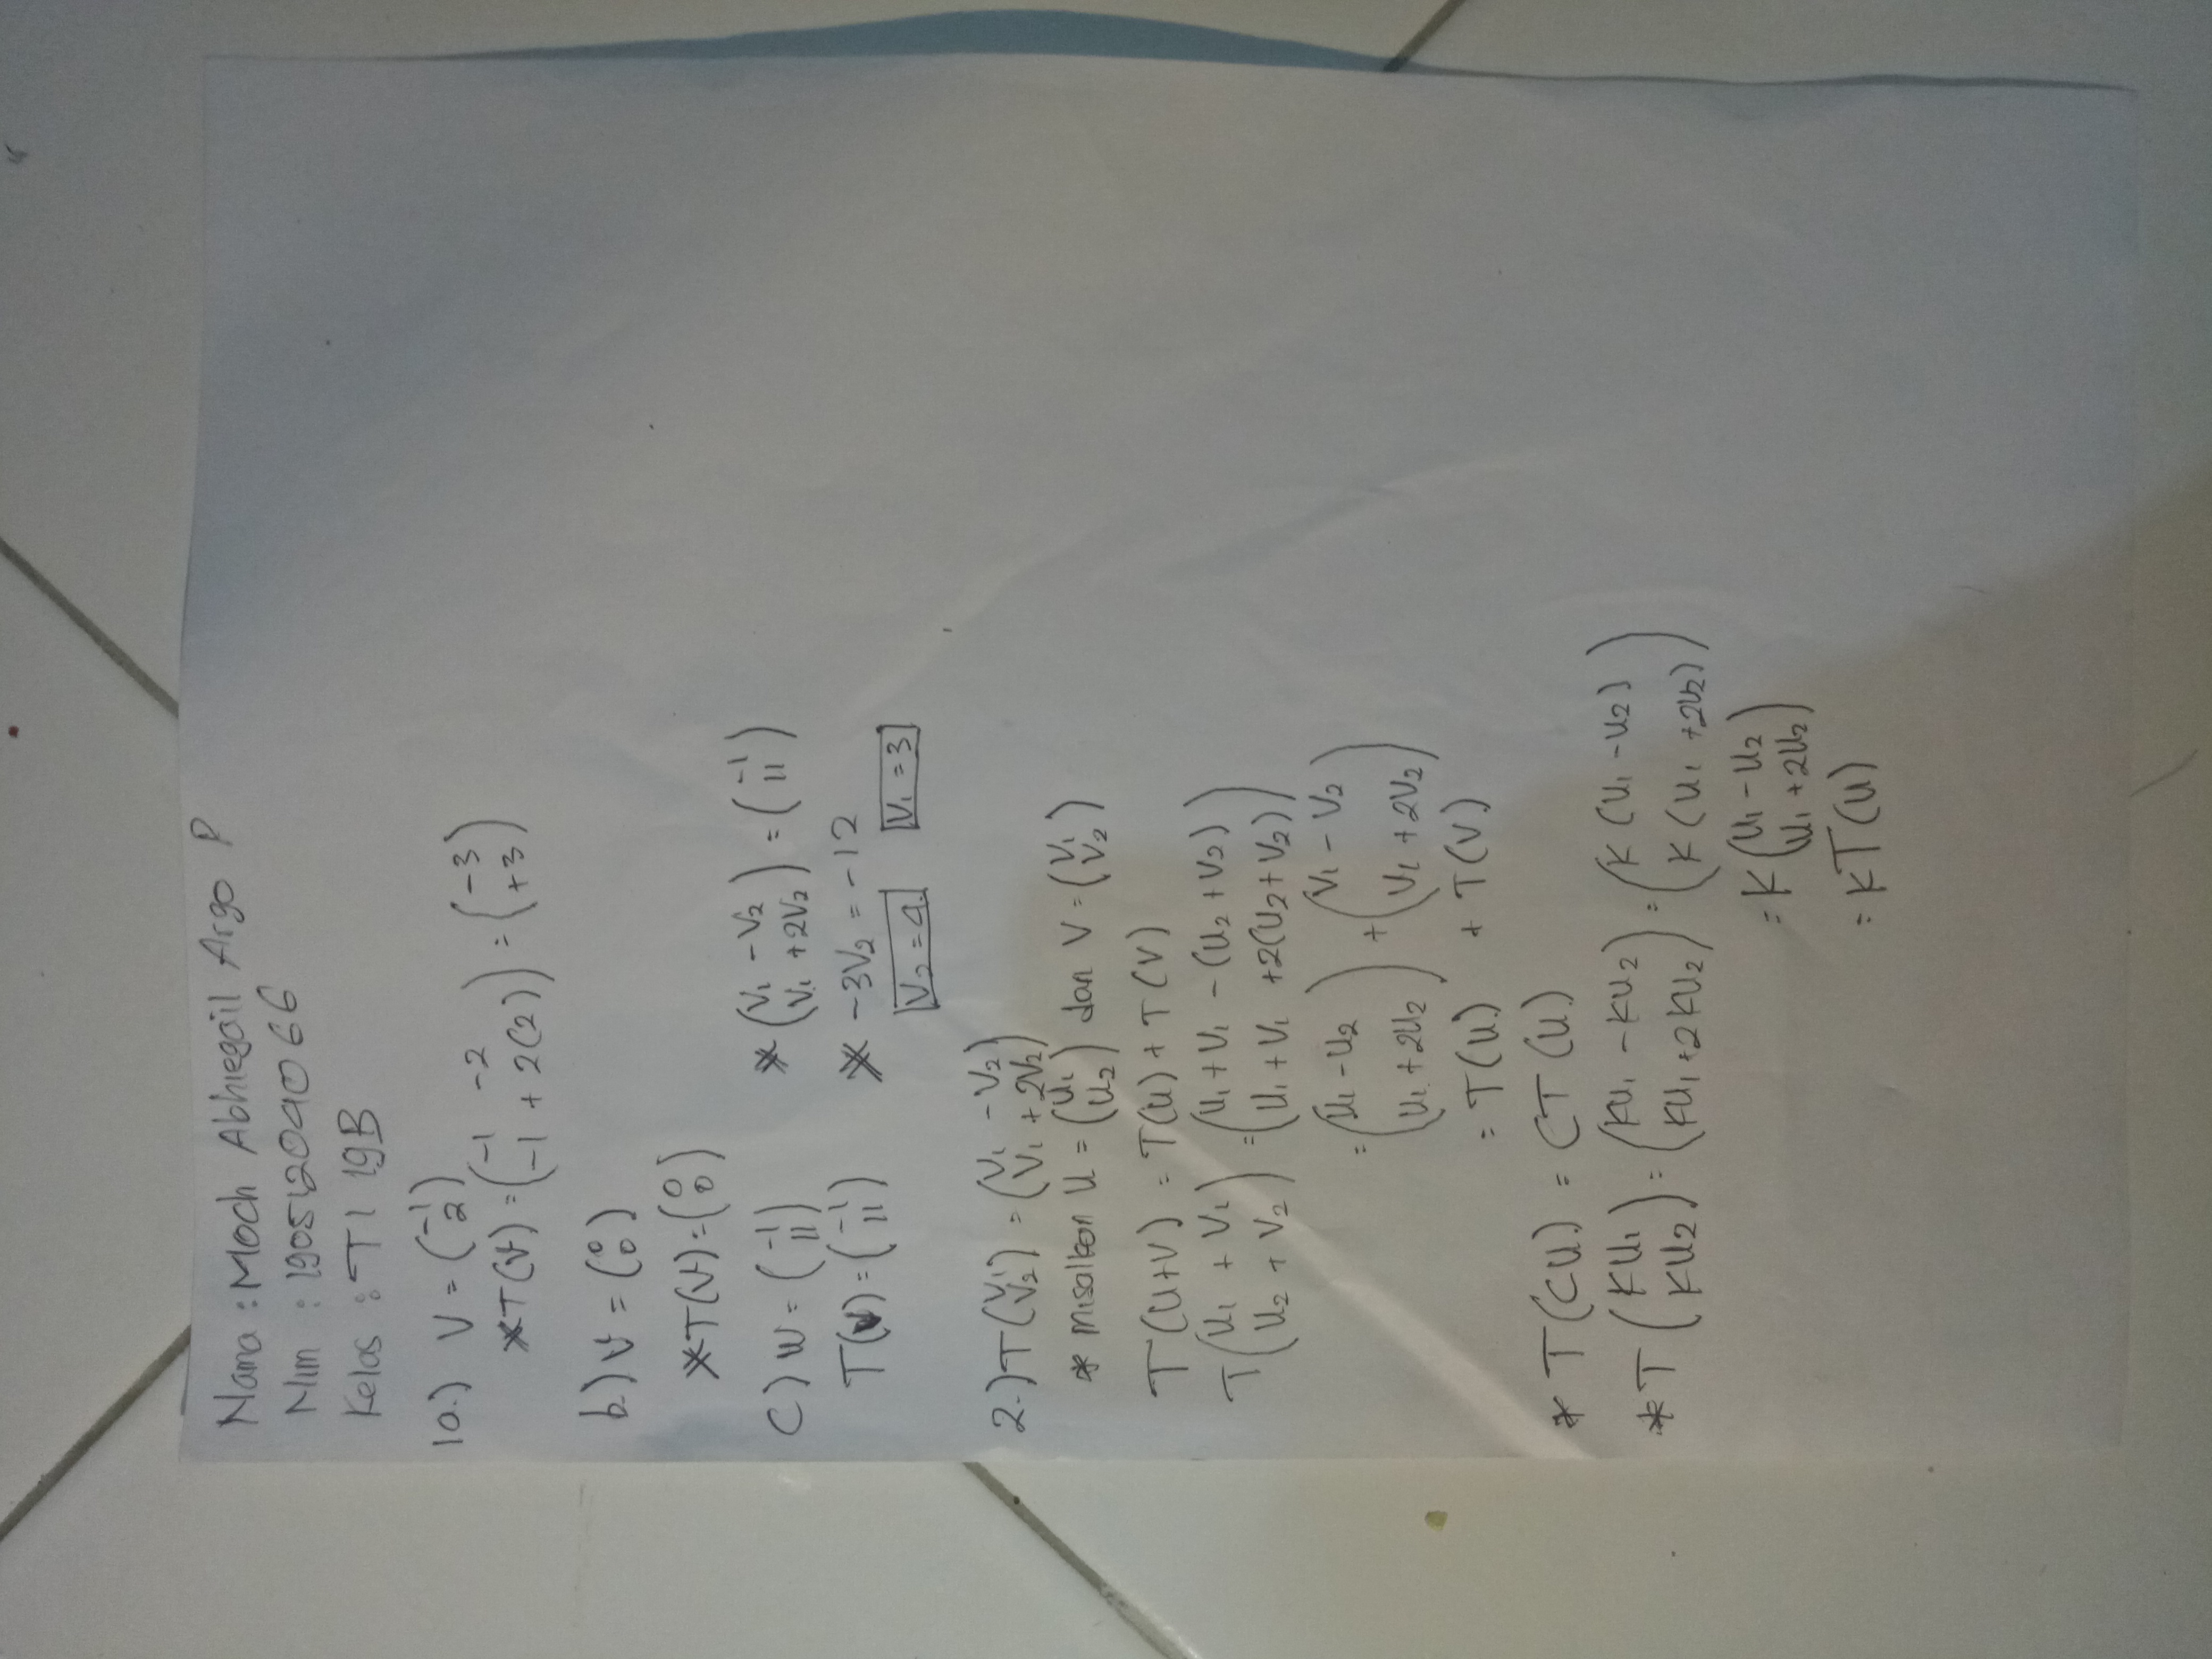 Nama : Moch Abhiegail Argo P
Nim : 19051204066
Kelas : TI 19B
1a.) V = (-1 2)
*T(V) = (-1 -2 -1 + 2(2)) = (-3 +3)
b.) V = (0 0)
*T(V) = (0 0)
C) W = (-1 11)
T(V) = (-1 11)
* (V1 - V2 V1 + 2V2) = (-1 11)
* -3V2 = -12
V2 = 4. V1 = 3
2.) T(V1 V2) = (V1 - V2 V1 + 2V2)
* misalkan U = (U1 U2) dan V = (V1 V2)
T(U+V) = T(U) + T(V)
T(U1 + V1 U2 + V2) = (U1 + V1 - (U2 + V2) U1 + V1 + 2(U2 + V2))
= (U1 - U2 U1 + 2U2) + (V1 - V2 V1 + 2V2)
= T(U) + T(V)
* T(CU) = CT(U)
* T(KU1 KU2) = (KU1 - KU2 KU1 + 2KU2) = (K(U1 - U2) K(U1 + 2U2))
= K(U1 - U2 U1 + 2U2)
= KT(U)